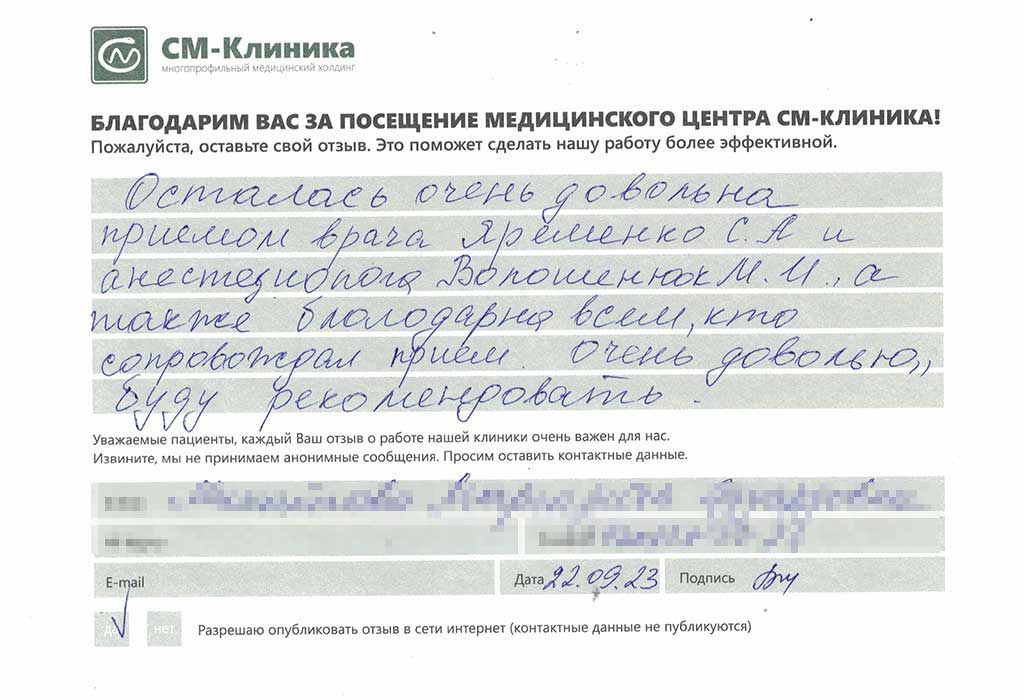 СМ-Клиника
многопрофильный медицинский холдинг
БЛАГОДАРИМ ВАС ЗА ПОСЕЩЕНИЕ МЕДИЦИНСКОГО ЦЕНТРА СМ-КЛИНИКА!
Пожалуйста, оставьте свой отзыв. Это поможет сделать нашу работу более эффективной.
Осталась очень довольна
приемом врача Яременко С.А и
анестезиолога Волошенюк М.И., а
также благодарна всем, кто
сопровождал прием. Очень довольна,
буду рекомендовать.
Уважаемые пациенты, каждый Ваш отзыв о работе нашей клиники очень важен для нас.
Извините, мы не принимаем анонимные сообщения. Просим оставить контактные данные.
E-mail Дата 22.09.23 Подпись
да нет Разрешаю опубликовать отзыв в сети интернет (контактные данные не публикуются)